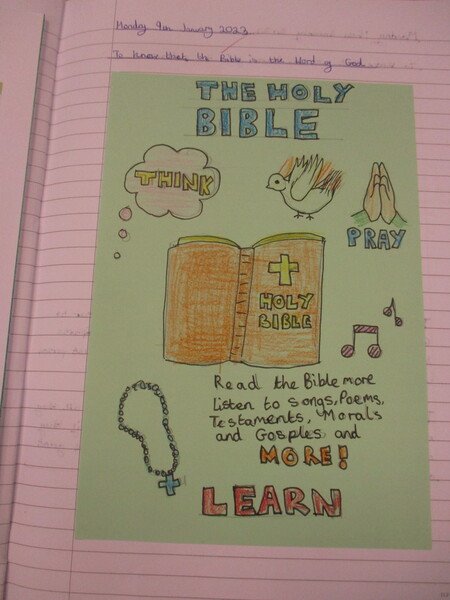 Monday 9th January 2023
To know that the Bible is the Word of God.
THE HOLY
BIBLE
THINK
PRAY
HOLY
BIBLE
Read the Bible more
listen to songs, Poems,
Testaments, Morals
and Gosples and
MORE!
LEARN